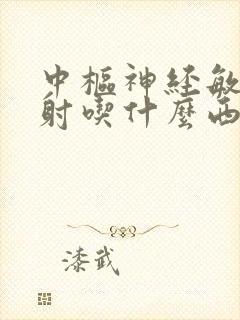 中樞神経敏
射喫什麼西
漆武